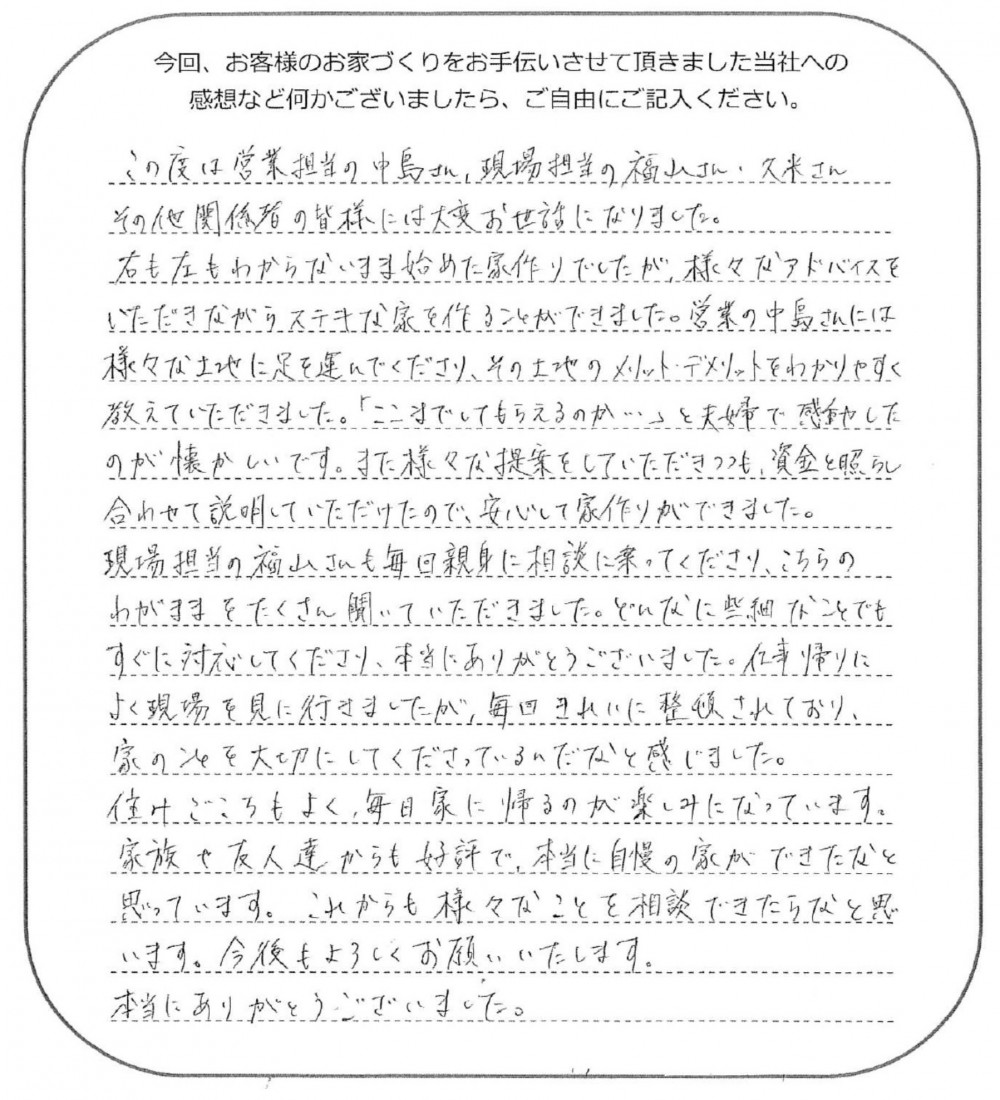 今回、お客様のお家づくりをお手伝いさせて頂きました当社への
感想など何かございましたら、ご自由にご記入ください。
この度は営業担当の中島さん,現場担当の福山さん・久米さん
その他関係者の皆様には大変お世話になりました。
右も左もわからないまま始めた家作りでしたが,様々なアドバイスを
いただきながらステキな家を作ることができました。営業の中島さんには
様々な土地に足を運んでくださり、その土地のメリット・デメリットをわかりやすく
教えていただきました。「ここまでしてもらえるのか…」と夫婦で感動した
のが懐かしいです。また様々な提案をしていただきつつも,資金と照らし
合わせて説明していただけたので、安心して家作りができました。
現場担当の福山さんも毎回親身に相談に乗ってくださり、こちらの
わがままをたくさん聞いていただきました。どんなに些細なことでも
すぐに対応してくださり、本当にありがとうございました。仕事帰りに
よく現場を見に行きましたが,毎回きれいに整頓されており、
家のことを大切にしてくださっているんだなと感じました。
住みごこちもよく,毎日家に帰るのが楽しみになっています。
家族や友人達からも好評で,本当に自慢の家ができたなと
思っています。これからも様々なことを相談できたらなと思
います。今後もよろしくお願いいたします。
本当にありがとうございました。